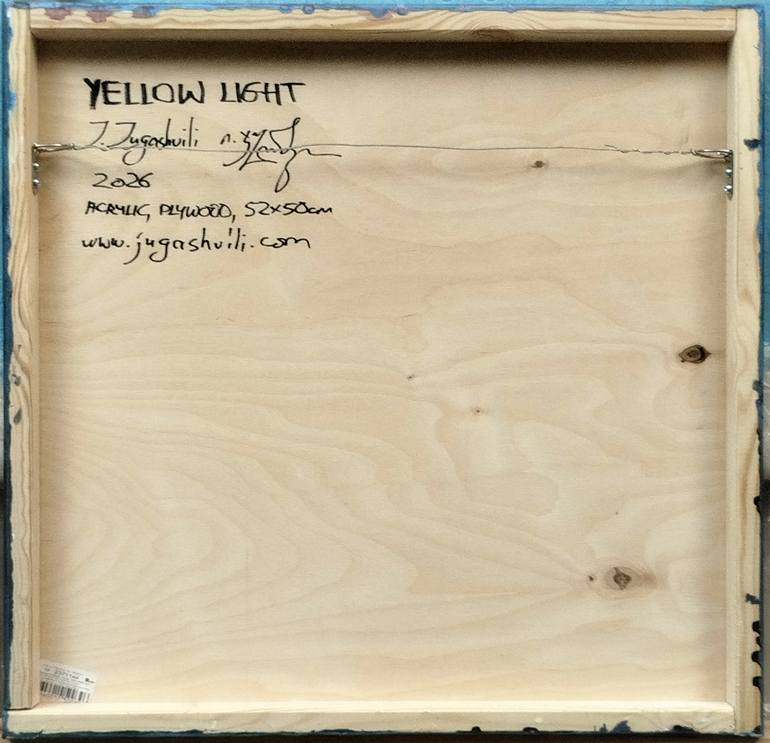 YELLOW LIGHT
J. Jugashvili
2026
ACRYLIC, PLYWOOD, 52x50cm
www.jugashvili.com